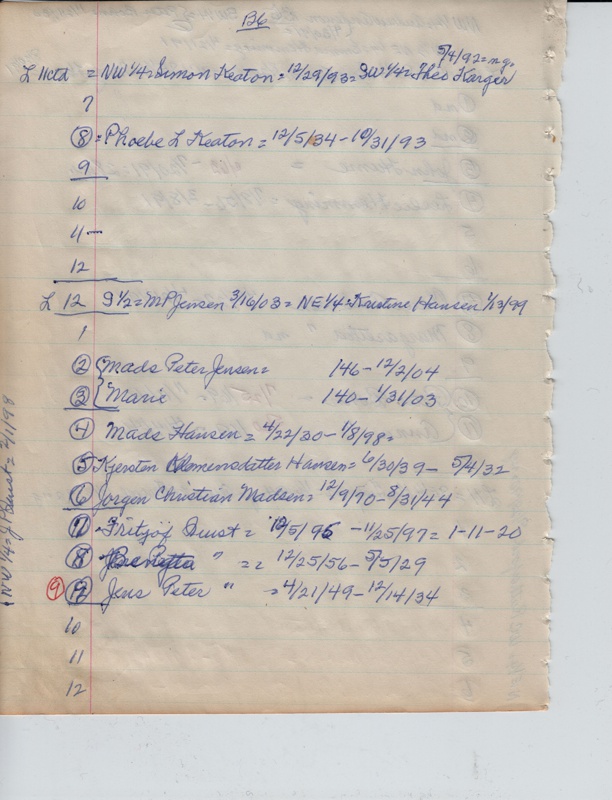 B6
5/4/92 = m.g.
L 11ctd = NW 1/4 = Simon Keaton = 12/29/93 = SW 1/4 = Theo Karger
7
8 = Phoebe L Keaton = 12/5/34 - 10/31/93
9
10
11
12
L 12 S 1/2 = M P Jensen 3/16/03 = NE 1/4 = Kirstine Hansen 1/13/99
1
2 { Mads Peter Jensen = 146 - 12/2/04
3 { Marie - 140 - 1/31/03
4 Mads Hansen = 4/22/30 - 1/8/98 =
5 Kjersten Hansen = 6/30/39 - 5/4/32
6 Jorgen Christian Madsen = 12/9/70 - 8/31/44
7 Fritzjof Buist = 10/5/96 - 11/25/97 = 1-11-20
8 " = 12/25/56 - 5/5/29
9 Jens Peter " = 4/21/49 - 12/14/34
10
11
12
NW 1/4 = J P Buist = 2/1/98